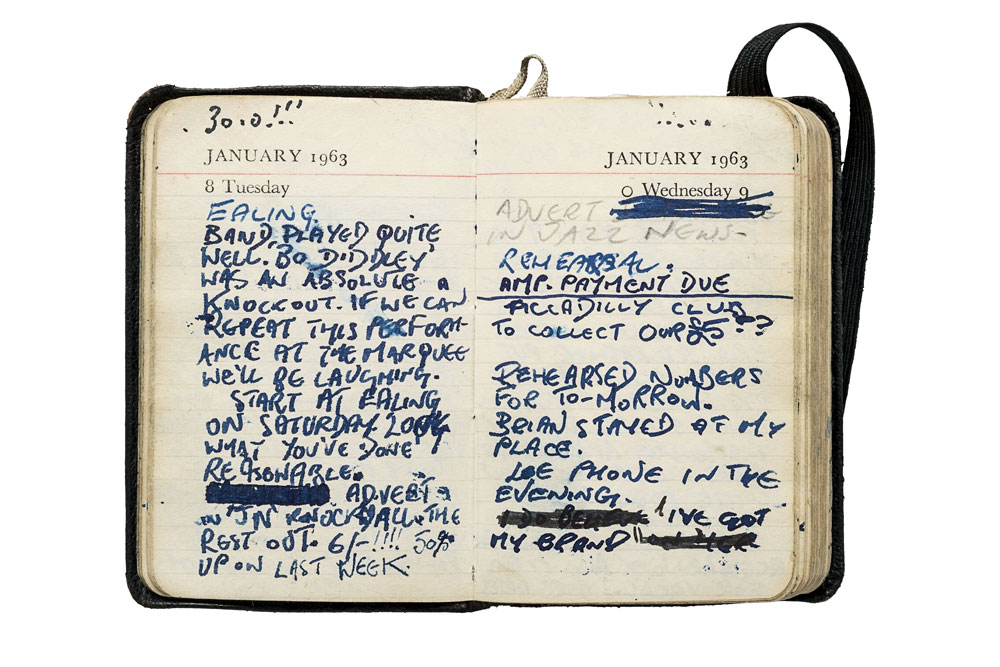 30.0!!!
JANUARY 1963
8 Tuesday
EALING.
BAND PLAYED QUITE
WELL. BO DIDDLEY
WAS AN ABSOLULE
KNOCKOUT. IF WE CAN
REPEAT THIS PERFORM-
ANCE AT THE MARQUEE
WE'LL BE LAUGHING.
START AT EALING
ON SATURDAY. LOOK
WHAT YOU'VE DONE
REASONABLE.
ADVERT
IN "JN" KNOCKS ALL THE
REST OUT. 6/-!!!! 50%
UP ON LAST WEEK.
JANUARY 1963
Wednesday 9
ADVERT
IN JAZZ NEWS-
REHEARSAL.
AMP. PAYMENT DUE
PICCADILLY CLUB
TO COLLECT OUR £5??
REHEARSED NUMBERS
FOR TO-MORROW.
BRIAN STAYED AT MY
PLACE.
LEE PHONE IN THE
EVENING.
I'VE GOT
MY BRAND